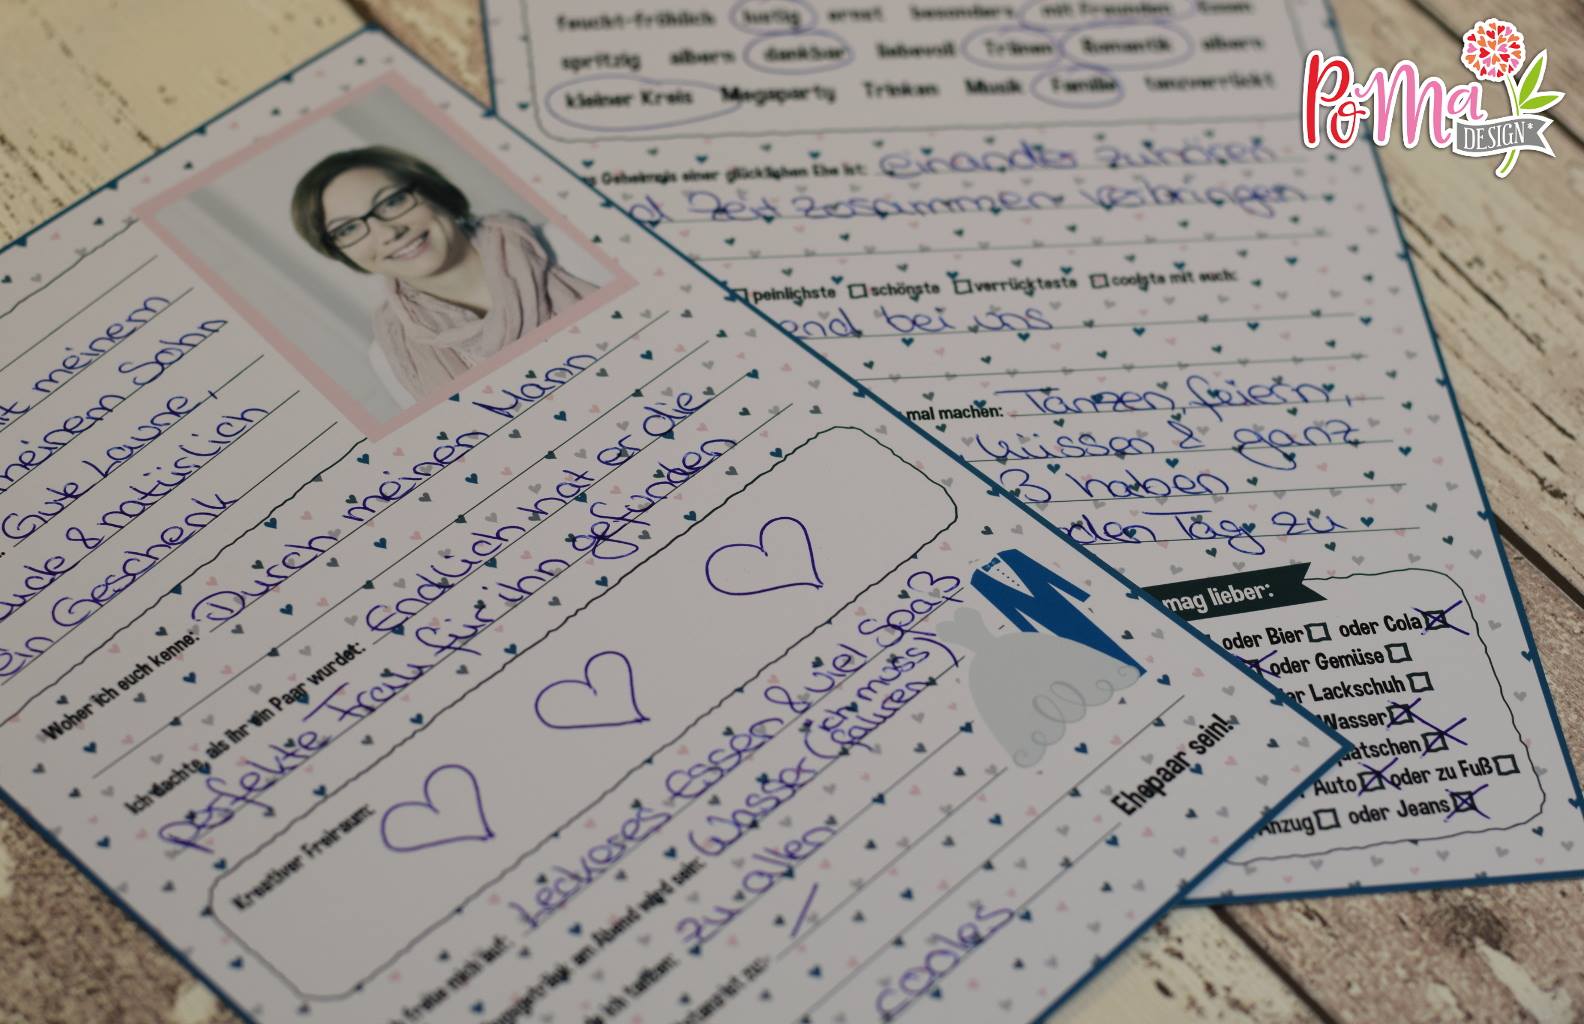 feucht-fröhlich lustig ernst besonders mit Freunden Essen
spritzig albern dankbar liebevoll Tränen Romantik albern
kleiner Kreis Megaparty Trinken Musik Familie tanzverrückt
Geheimnis einer glücklichen Ehe ist: einander zuhören
Zeit zusammen verbringen
peinlichste schönste verrückteste coolste mit euch:
bei uns
mal machen: Tanzen, feiern,
küssen & ganz
haben
den Tag zu
mag lieber:
oder Bier oder Cola
oder Gemüse
Lackschuh
Wasser
Auto oder zu Fuß
Anzug oder Jeans
PoMa
DESIGN*
meinem
meinem Sohn
Gute Laune,
& natürlich
ein Geschenk
Woher ich euch kenne: Durch meinen Mann
Ich dachte, als ihr ein Paar wurdet: Endlich hat er die
perfekte Frau für ihn gefunden
Kreativer Freiraum:
freue mich auf: Leckeres Essen & viel Spaß
am Abend wird sein: Wasser (ich muss
fahren)
zu allen
cooles
Ehepaar sein!